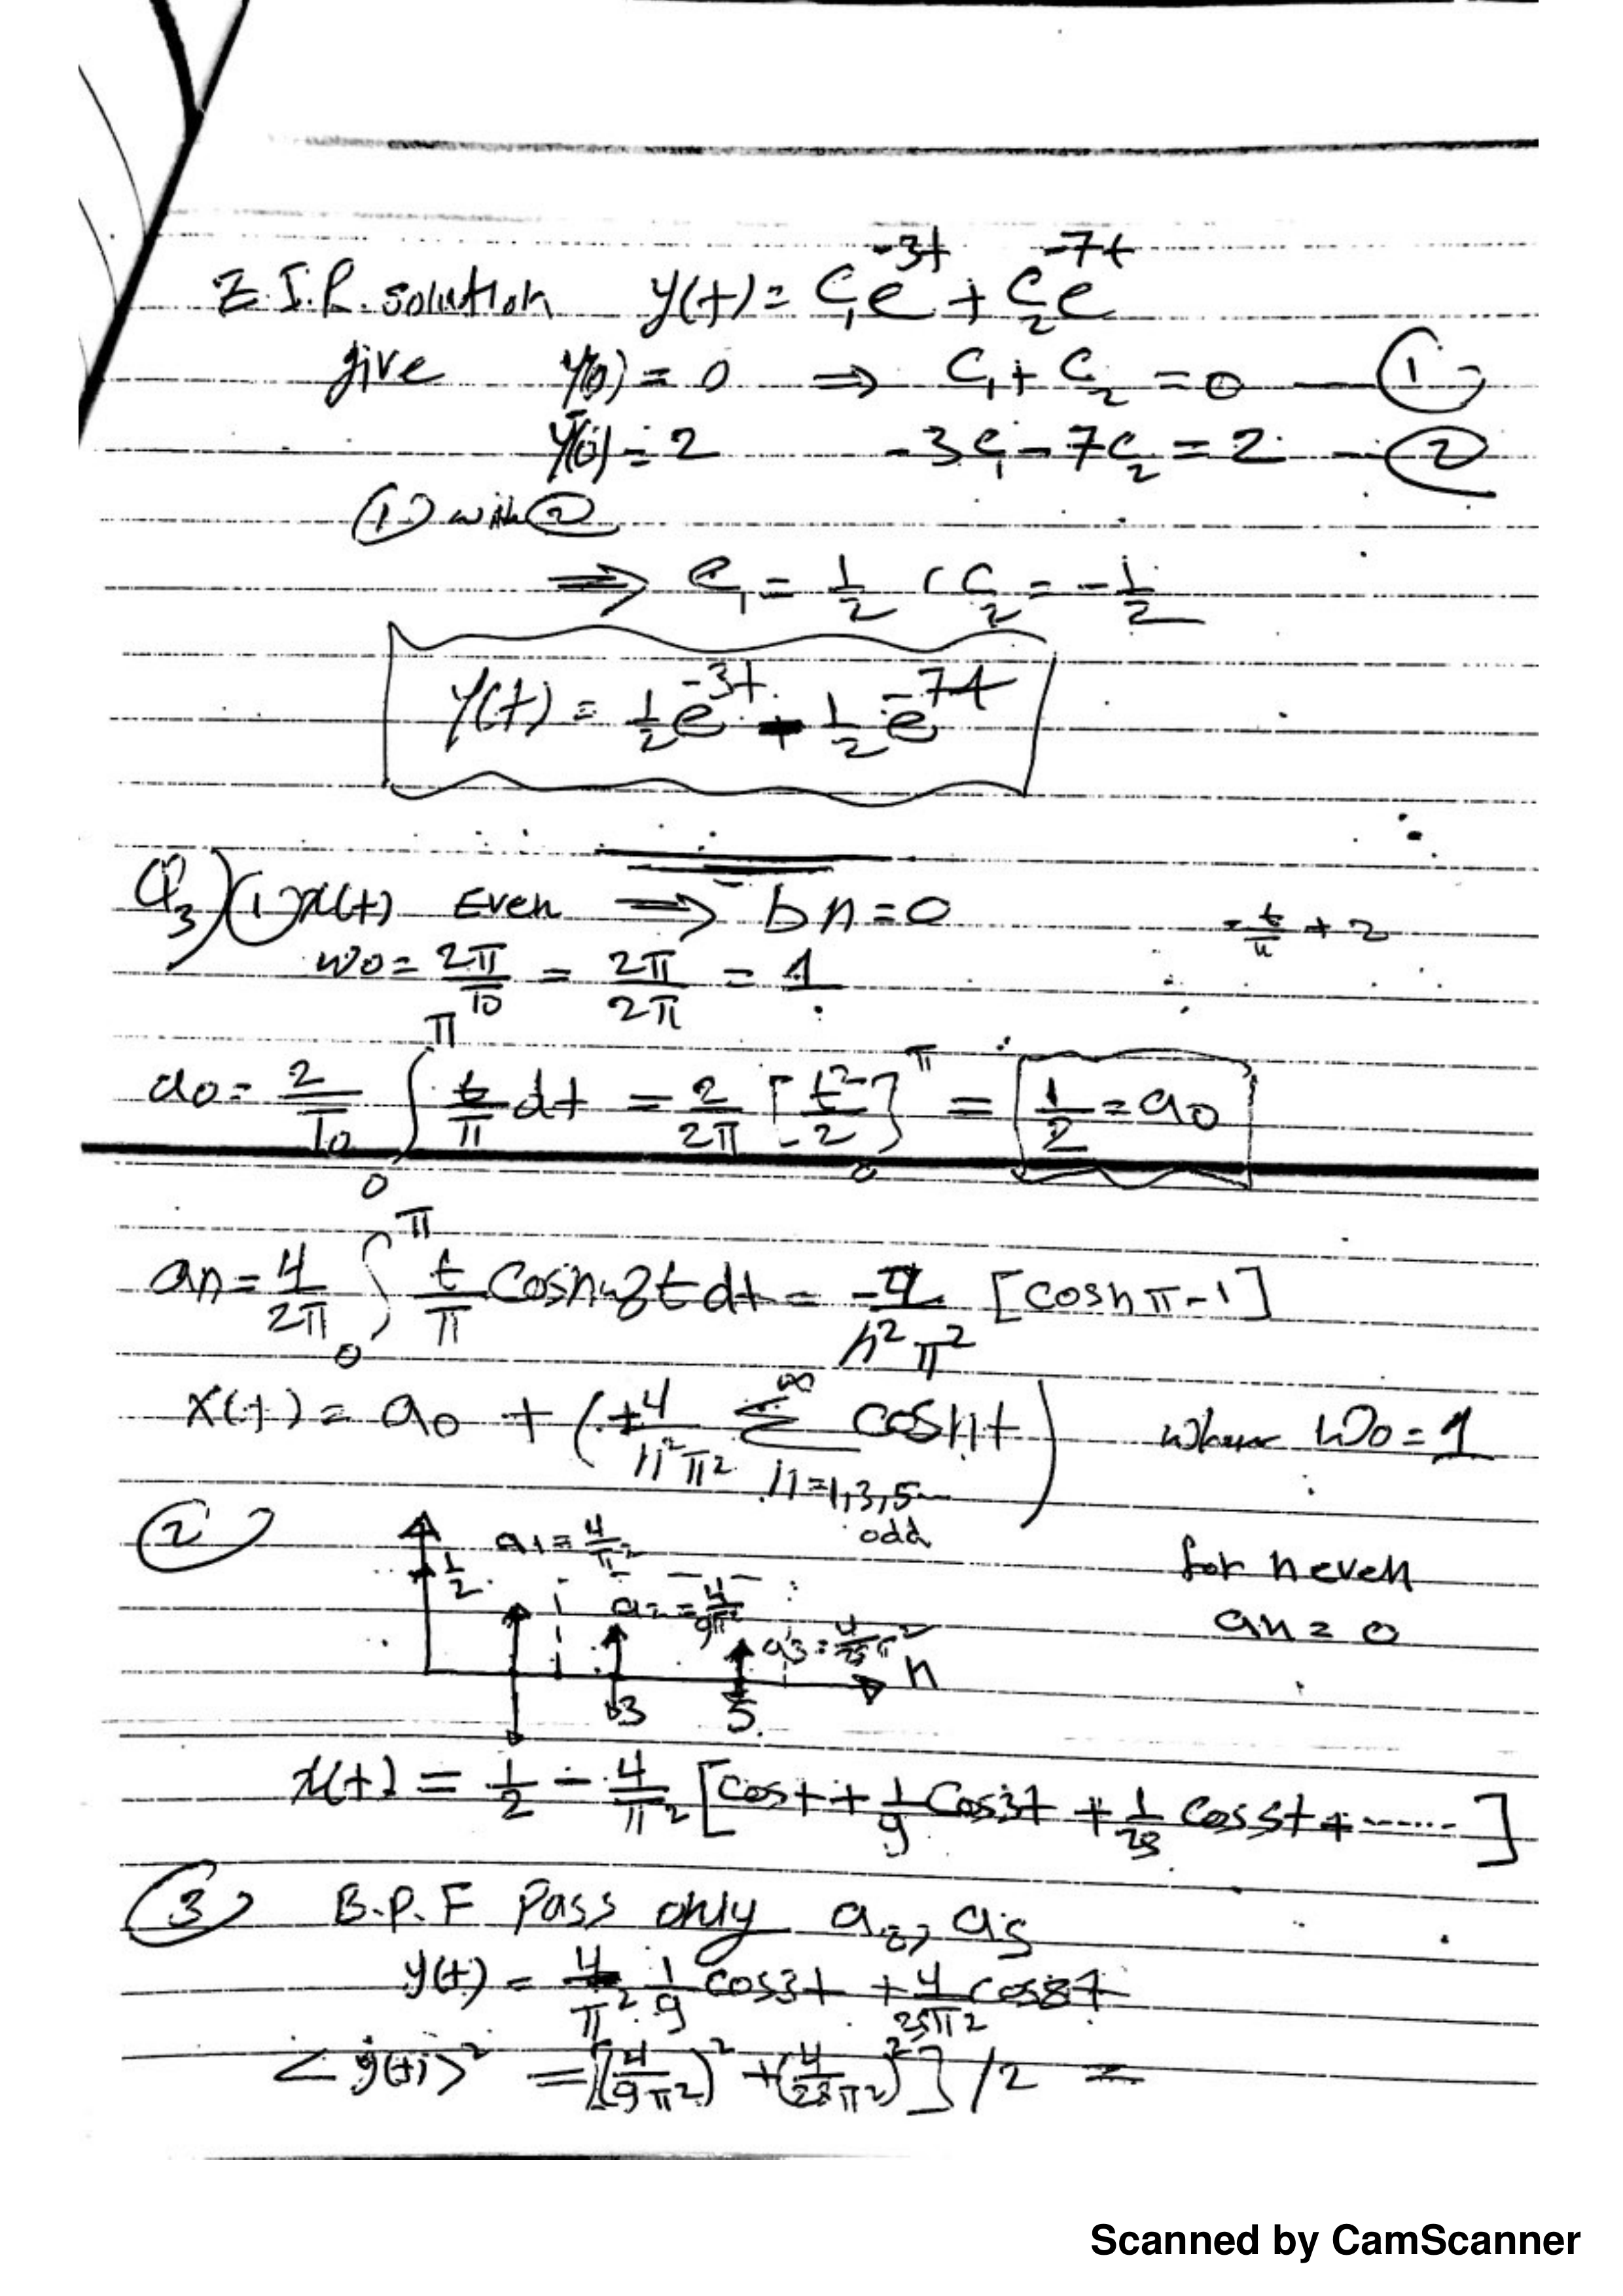 Z.I.R. solution y(t) = C₁e^{-3t} + C₂e^{-7t}
give y(0) = 0 ⇒ C₁ + C₂ = 0 — (1)
ẏ(0) = 2 -3C₁ - 7C₂ = 2 — (2)
(1) with (2)
⇒ C₁ = 1/2 , C₂ = -1/2
y(t) = 1/2 e^{-3t} - 1/2 e^{-7t}
Q3) (1) x(t) Even ⇒ bn = 0
+ 2
ω0 = 2π/T0 = 2π/2π = 1
a0 = 2/T0 ∫_0^π t/π dt = 2/2π [t²/2]_0^π = 1/2 = a0
an = 4/2π ∫_0^π t/π cos t dt = [cos nπ - 1]
x(t) = a0 + (4/n²π² Σ^∞_{n=1,3,5... odd} cos nt) where ω0 = 1
(2)
1/2
a1 = 4/π²
a2 = 4/9π²
a3 = 4/25π²
n
3
5
for n even
an = 0
x(t) = 1/2 - 4/π² [cos t + 1/9 cos 3t + 1/25 cos 5t + ......]
(3) B.P.F Pass only a3, a5
y(t) = 4/π² 1/9 cos 3t + 4/25π² cos t
< y(t) >² = [(4/9π²)² + (4/25π²)²] /2 =
Scanned by CamScanner